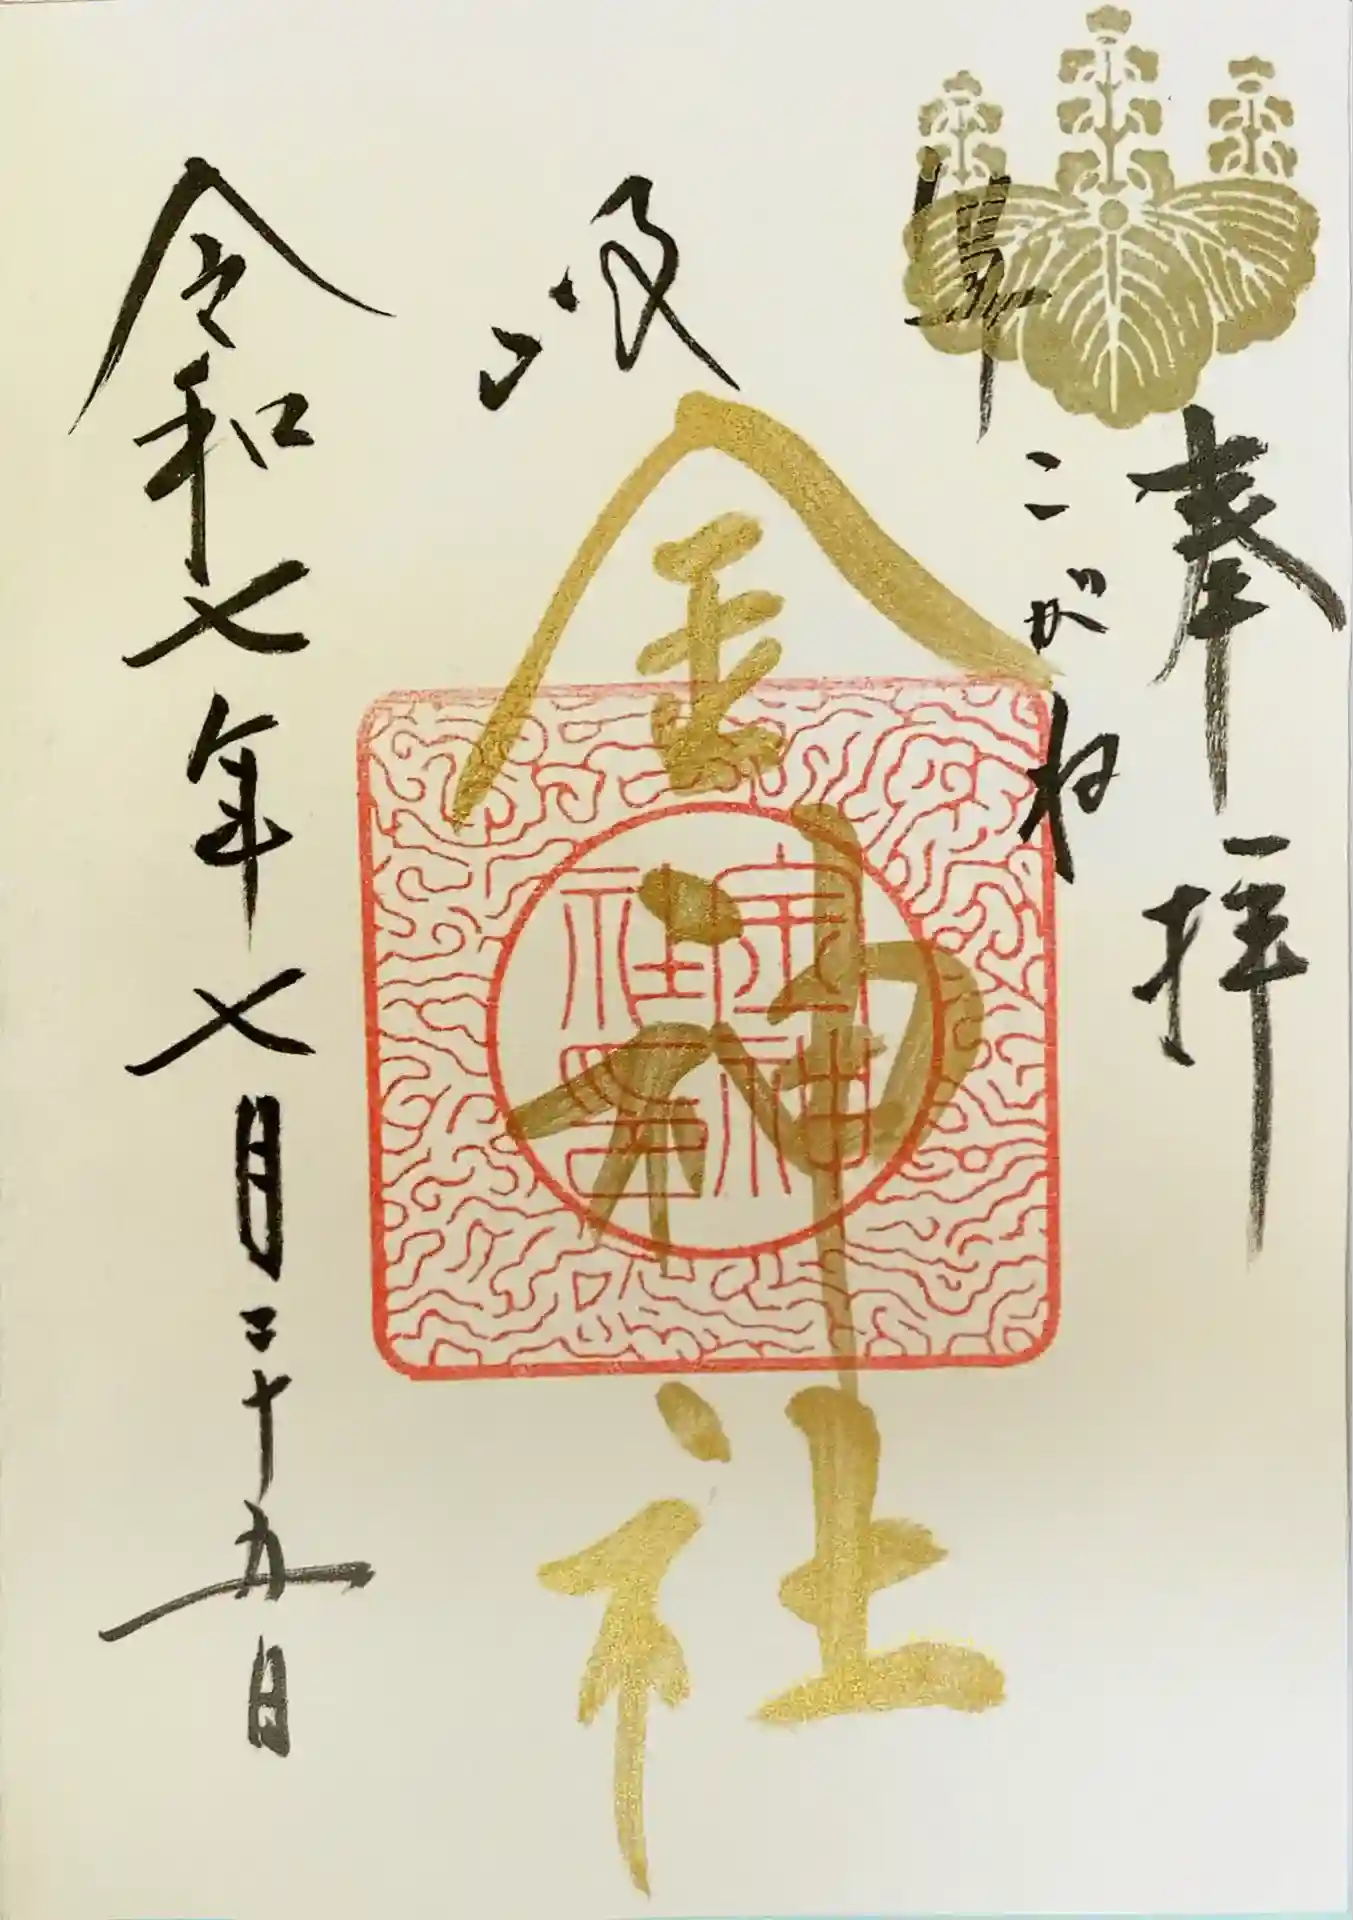 奉拝
こがね
金神社
金神社印
令和七年七月二十五日